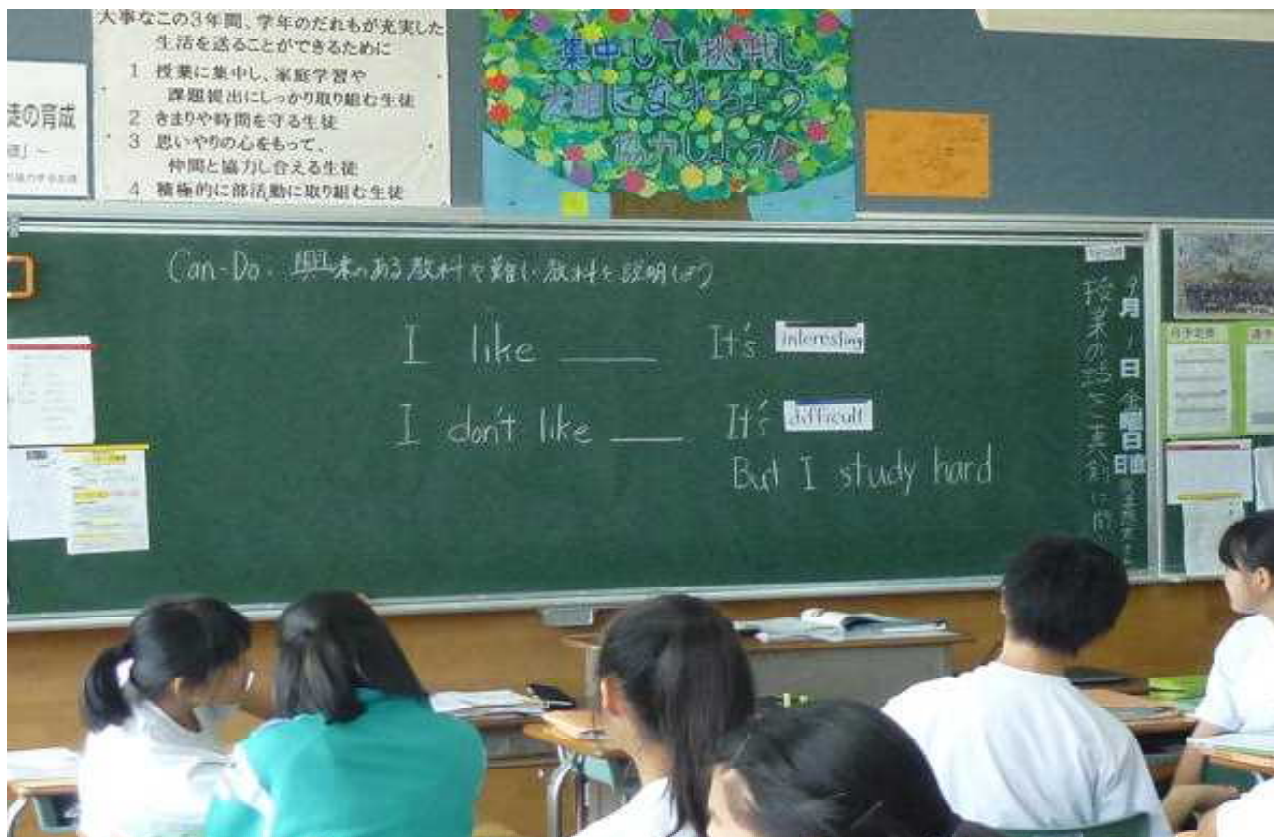 大事なこの3年間、学年のだれもが充実した
生活を送ることができるために
1 授業に集中し、家庭学習や
課題提出にしっかり取り組む生徒
2 きまりや時間を守る生徒
3 思いやりの心をもって、
仲間と協力し合える生徒
4 積極的に部活動に取り組む生徒
徒の育成
集中して挑戦し
協力しよう
Can-Do. 興味のある教科や難しい教科を説明しよう
I like ___ It's interesting
I don't like ___ It's difficult
But I study hard
9月1日金曜日
日直
授業の挨拶を真剣に
月予定表